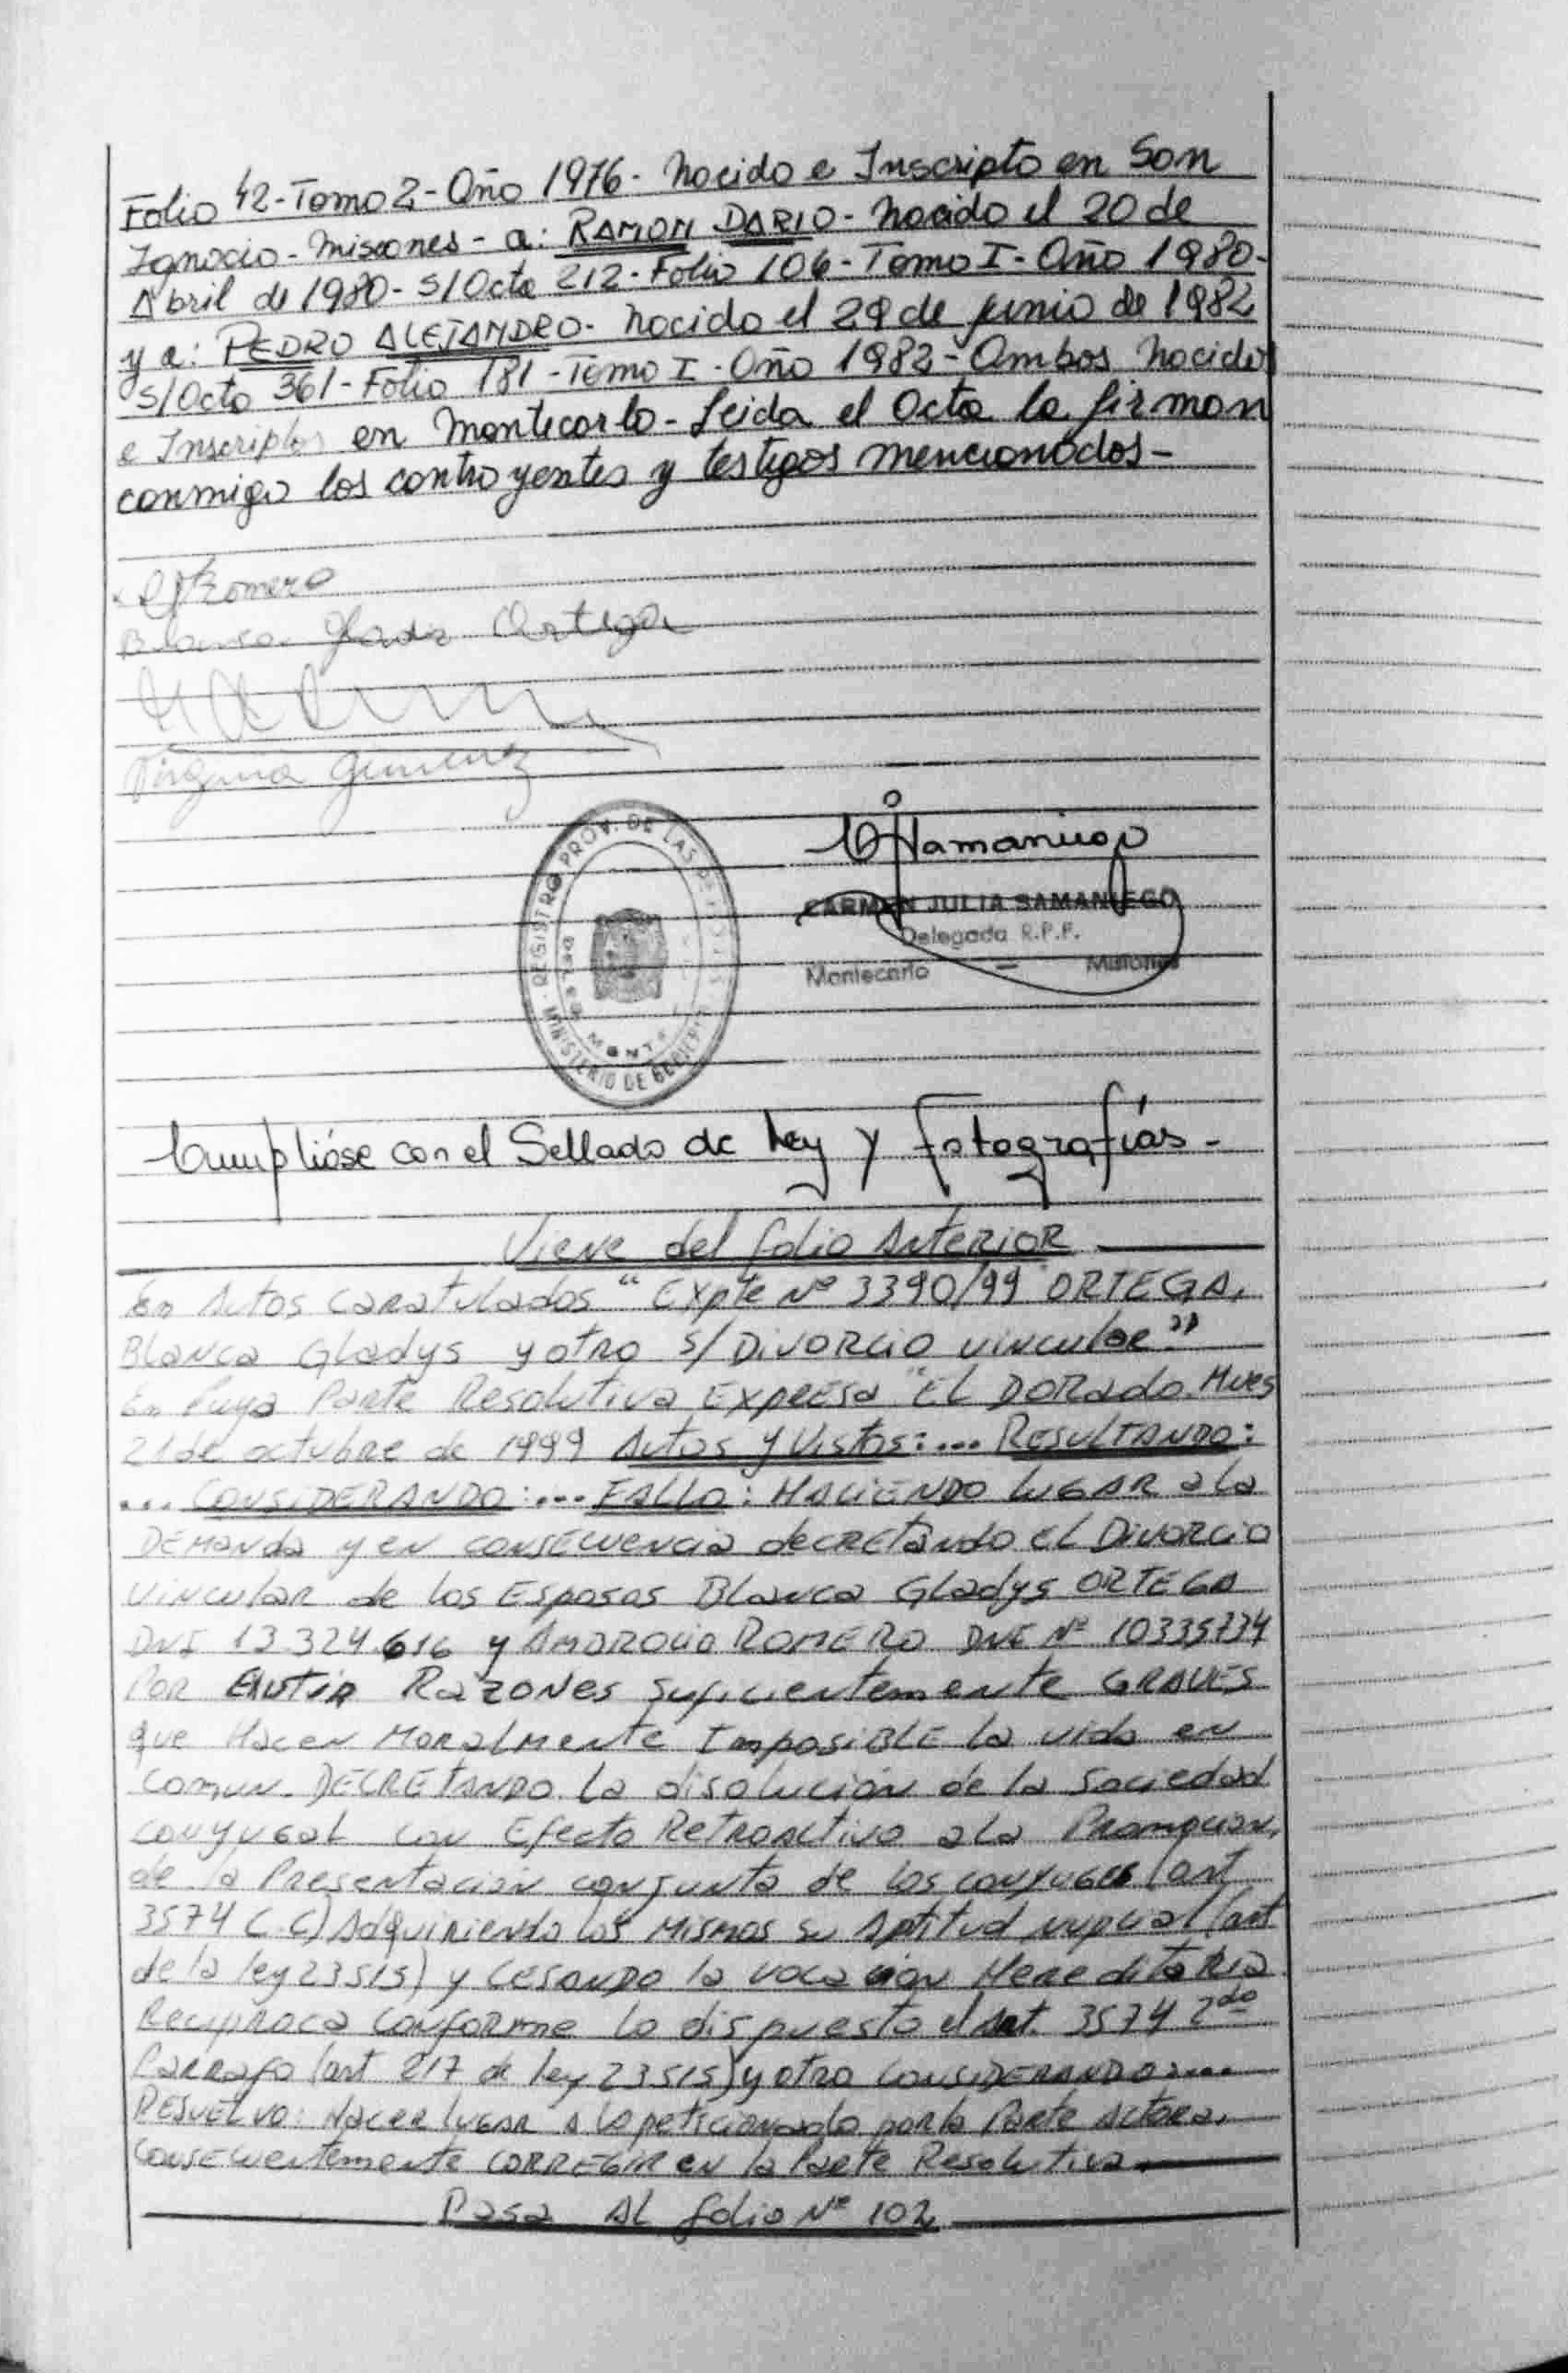 Folio 42-Tomo 2-Año 1976- Nacido e Inscripto en San
Ignacio-Misiones- a: RAMON DARIO- Nacido el 20 de
Abril de 1980- s/Acta 212-Folio 106-Tomo I-Año 1980-
y a: PEDRO ALEJANDRO- Nacido el 29 de junio de 1982
s/Acta 361-Folio 181-Tomo I-Año 1982-Ambos Nacidos
e Inscriptos en Montecarlo-Leida el Acta la firman
conmigo los contrayentes y testigos mencionados-
Romero
Blanca Gladis Ortega
Virginia Gimenez
REGISTRO PROV. DE LAS PERSONAS
MINISTERIO DE GOBIERNO
CARMEN JULIA SAMANIEGO
Delegada R.P.P.
Montecarlo - Misiones
Cumplióse con el Sellado de Ley y Fotografías-
Viene del folio Anterior
En Autos caratulados "Expte Nº 3390/99 ORTEGA,
Blanca Gladys y otro s/ Divorcio vincular"
En Cuya Parte Resolutiva Expresa "EL DORADO. Mnes
21 de octubre de 1999 Autos y Vistos:... RESULTANDO:
... CONSIDERANDO:... FALLO: HACIENDO LUGAR a la
DEMANDA y en consecuencia decretando el Divorcio
vincular de los Esposos Blanca Gladys ORTEGA
DNI 13.324.616 y AMBROCIO ROMERO DNI Nº 10335734
Por Existir Razones suficientemente GRAVES
que Hacen Moralmente Imposible la vida en
comun. DECRETANDO la disolución de la Sociedad
conyugal con Efecto Retroactivo a la Promocion,
de la Presentación conjunta de los conyuges (art
3574 C.C) Adquiriendo los Mismos su Aptitud nupcial (art
de la ley 23515) y CESANDO la vocacion Hereditaria
Reciproca conforme lo dispuesto el Art. 3574 2do
Parrafo (art 217 de ley 23515) y otro CONSIDERANDO:...
RESUELVO: Hacer lugar a lo peticionado por la Parte Actora,
Consecuentemente CORREGIR en la Parte Resolutiva
Pasa AL folio Nº 102